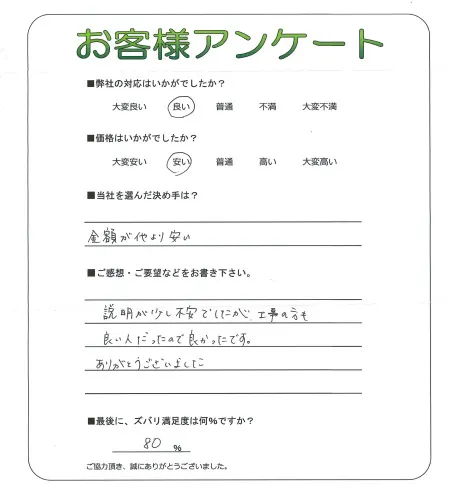 お客様アンケート
■弊社の対応はいかがでしたか？
大変良い 良い 普通 不満 大変不満
■価格はいかがでしたか？
大変安い 安い 普通 高い 大変高い
■当社を選んだ決め手は？
金額が他より安い
■ご感想・ご要望などをお書き下さい。
説明が少し不安でしたが 工事の方も
良い人だったので良かったです。
ありがとうございました
■最後に、ズバリ満足度は何%ですか？
80 %
ご協力頂き、誠にありがとうございました。